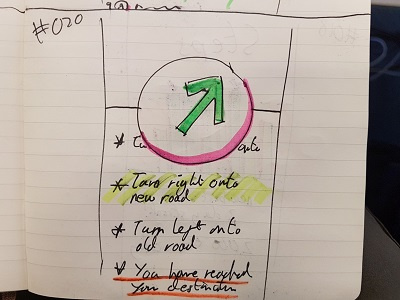 #020
* Turn right onto
new road
* Turn left onto
old road
* You have reached
your destination